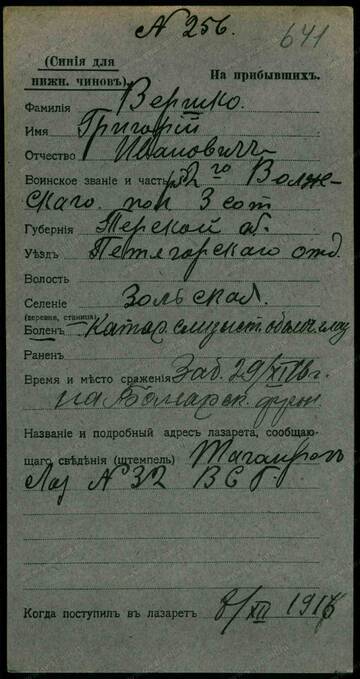 N 256.
641
(Синія для
нижн. чиновъ)
На прибывшихъ.
Фамилія Вершко.
Имя Григорій
Отчество Ивановичъ
Воинское званіе и часть 2го Волж-
скаго пол 3 сот
Губернія Терской об.
Уѣздъ Петягорскаго отд
Волость
Селеніе Зольская.
(деревня, станица)
Боленъ Катар слизист. оболоч глаз
Раненъ
Время и мѣсто сраженія Заб. 29/XI 16 г.
на фрон
Названіе и подробный адресъ лазарета, сообщаю-
щаго свѣдѣнія (штемпель) Таганрогъ
Лаз N 32 В С Г.
Когда поступилъ въ лазаретъ 8/XII 1916